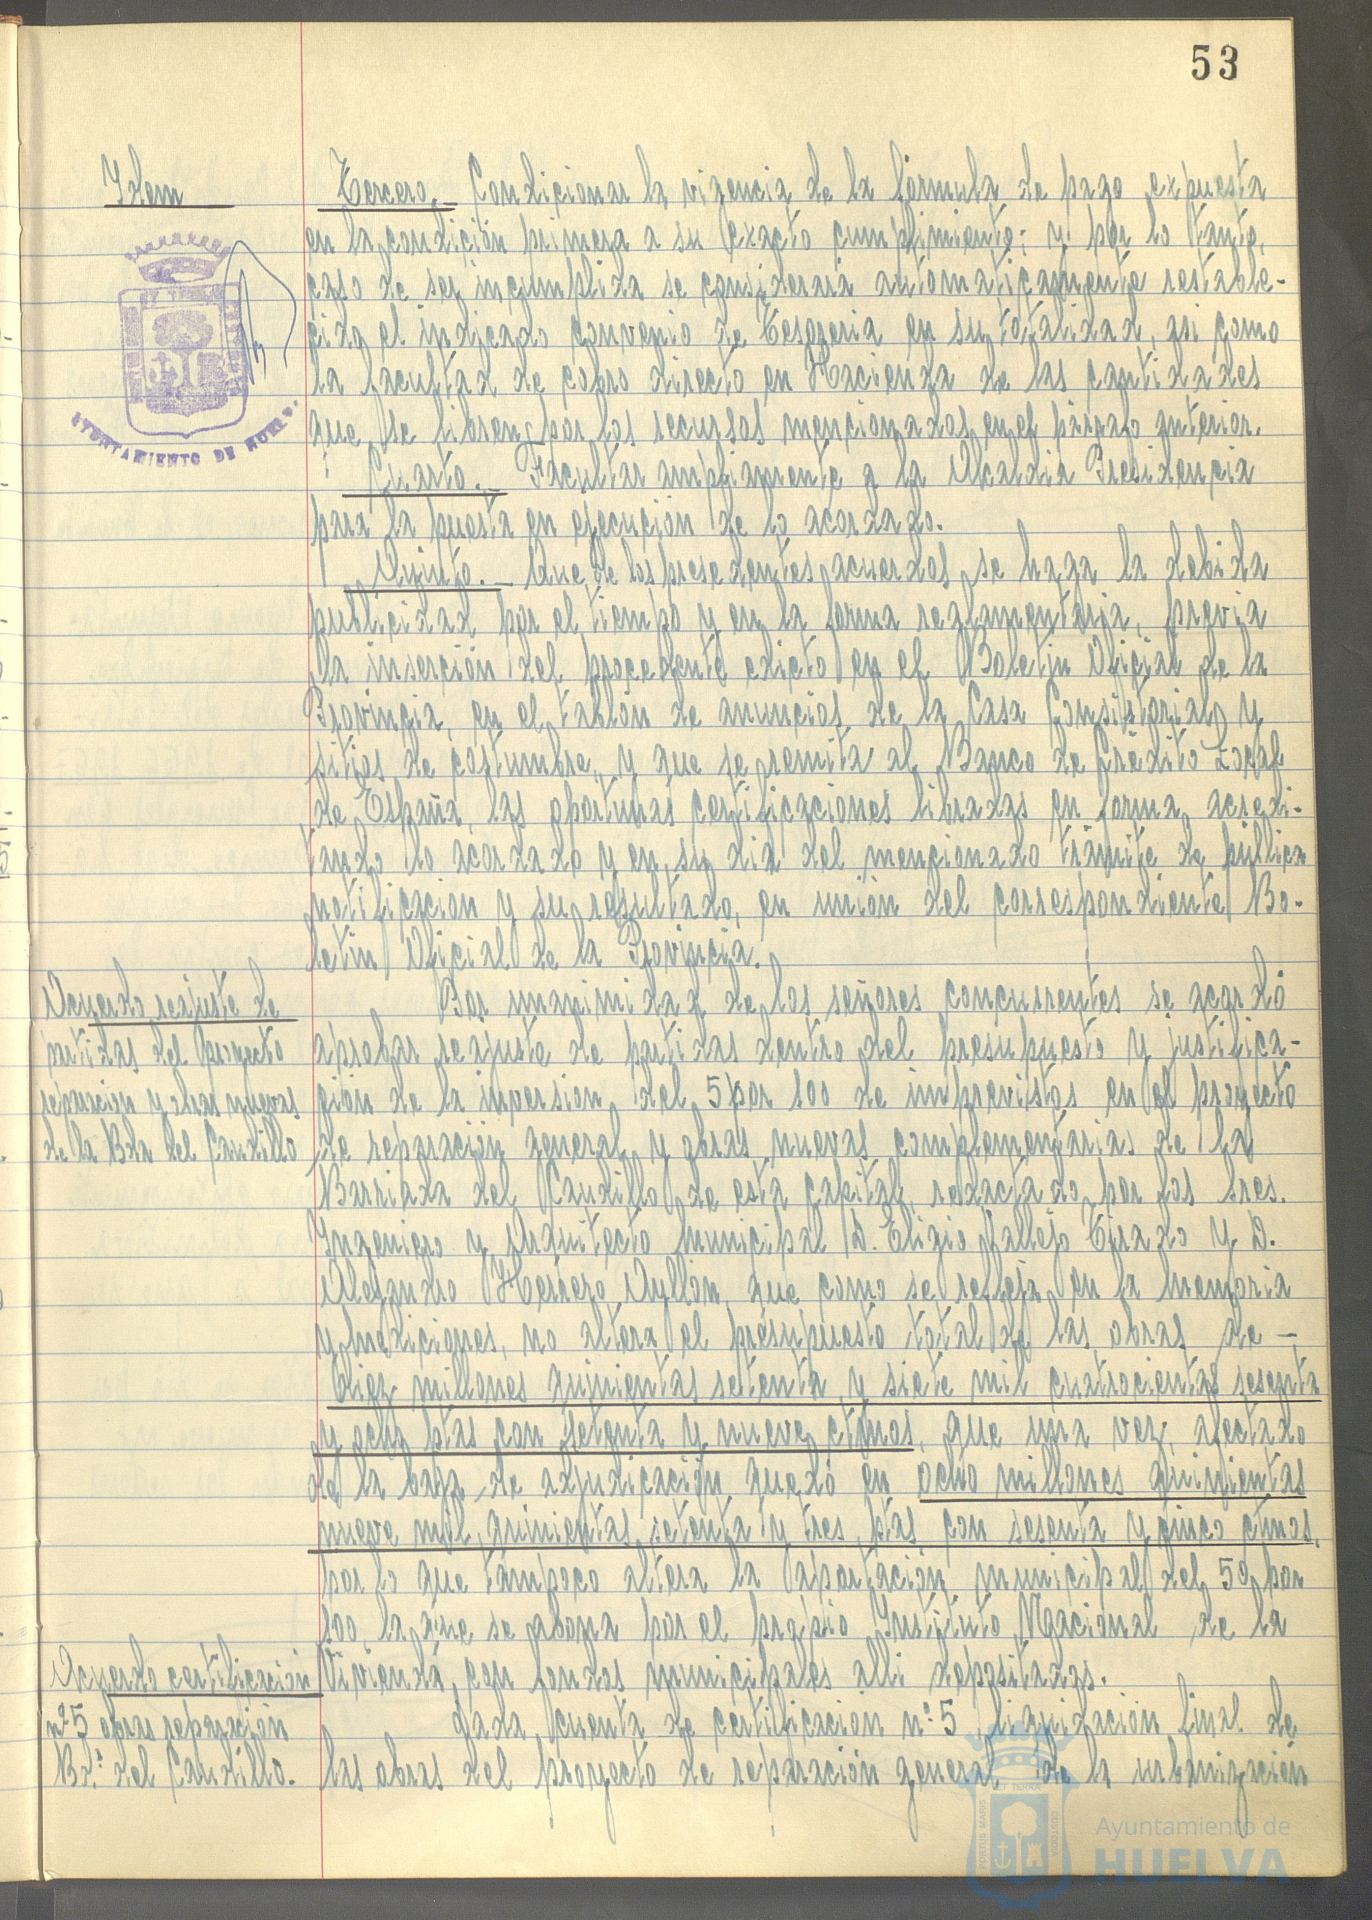 53
Idem
Tercero.- Condicionar la vigencia de la fórmula de pago expuesta
en la condición primera a su exacto cumplimiento; y por lo tanto,
caso de ser incumplida se considerará automaticamente restable-
cido el indicado convenio de Tesoreria en su totalidad, asi como
la facultad de cobro directo en Hacienda de las cantidades
que se libren por los recursos mencionados en el párrafo anterior.
AYUNTAMIENTO DE HUELVA
Cuarto.- Facultar ampliamente a la Alcaldia Presidencia
para la puesta en ejecución de lo acordado.
Quinto.- Que de los precedentes acuerdos se haga la debida
publicidad por el tiempo y en la forma reglamentaria, previa
la inserción del procedente edicto en el Boletin Oficial de la
Provincia, en el tablón de anuncios de la Casa Consistorial y
sitios de costumbre, y que se remita al Banco de Crédito Local
de España, las oportunas certificaciones libradas en forma, acredi-
tando lo acordado y en su dia del mencionado trámite de pública
notificación y su resultado, en unión del correspondiente Bo-
letin Oficial de la Provincia.
Acuerdo reajuste de
partidas del proyecto
reparacion y obras nuevas
de la Bda del Caudillo
Por unanimidad de los señores concurrentes se acordó
aprobar reajuste de partidas dentro del presupuesto y justifica-
ción de la inversion del 5 por 100 de imprevistos en el proyecto
de reparación general y obras nuevas complementarias de la
Barriada del Caudillo de esta capital, redactado por los Sres.
Ingeniero y Arquitecto Municipal D. Eligio Vallejo Tirado y D.
Alejandro Herrero Ayllón, que como se refleja en la memoria
y mediciones, no altera el presupuesto total de las obras de -
diez millones quinientas setenta y siete mil cuatrocientas sesenta
y ocho ptas con setenta y nueve ctmos, que una vez afectado
de la baja de adjudicación quedó en ocho millones quinientas
nueve mil quinientas setenta y tres ptas con sesenta y cinco ctmos,
por lo que tampoco altera la aportación municipal del 50 por
100 la que se abona por el propio Instituto Nacional de la
Vivienda, con fondos municipales alli depositados.
Acuerdo certificación
nº 5 obras reparación
Bd.ª del Caudillo.
Dada cuenta de certificacion nº 5 liquidación final de
las obras del proyecto de reparación general de la urbanización
PORTUS MARIS ET TERRAE CUSTODIA
Ayuntamiento de
HUELVA